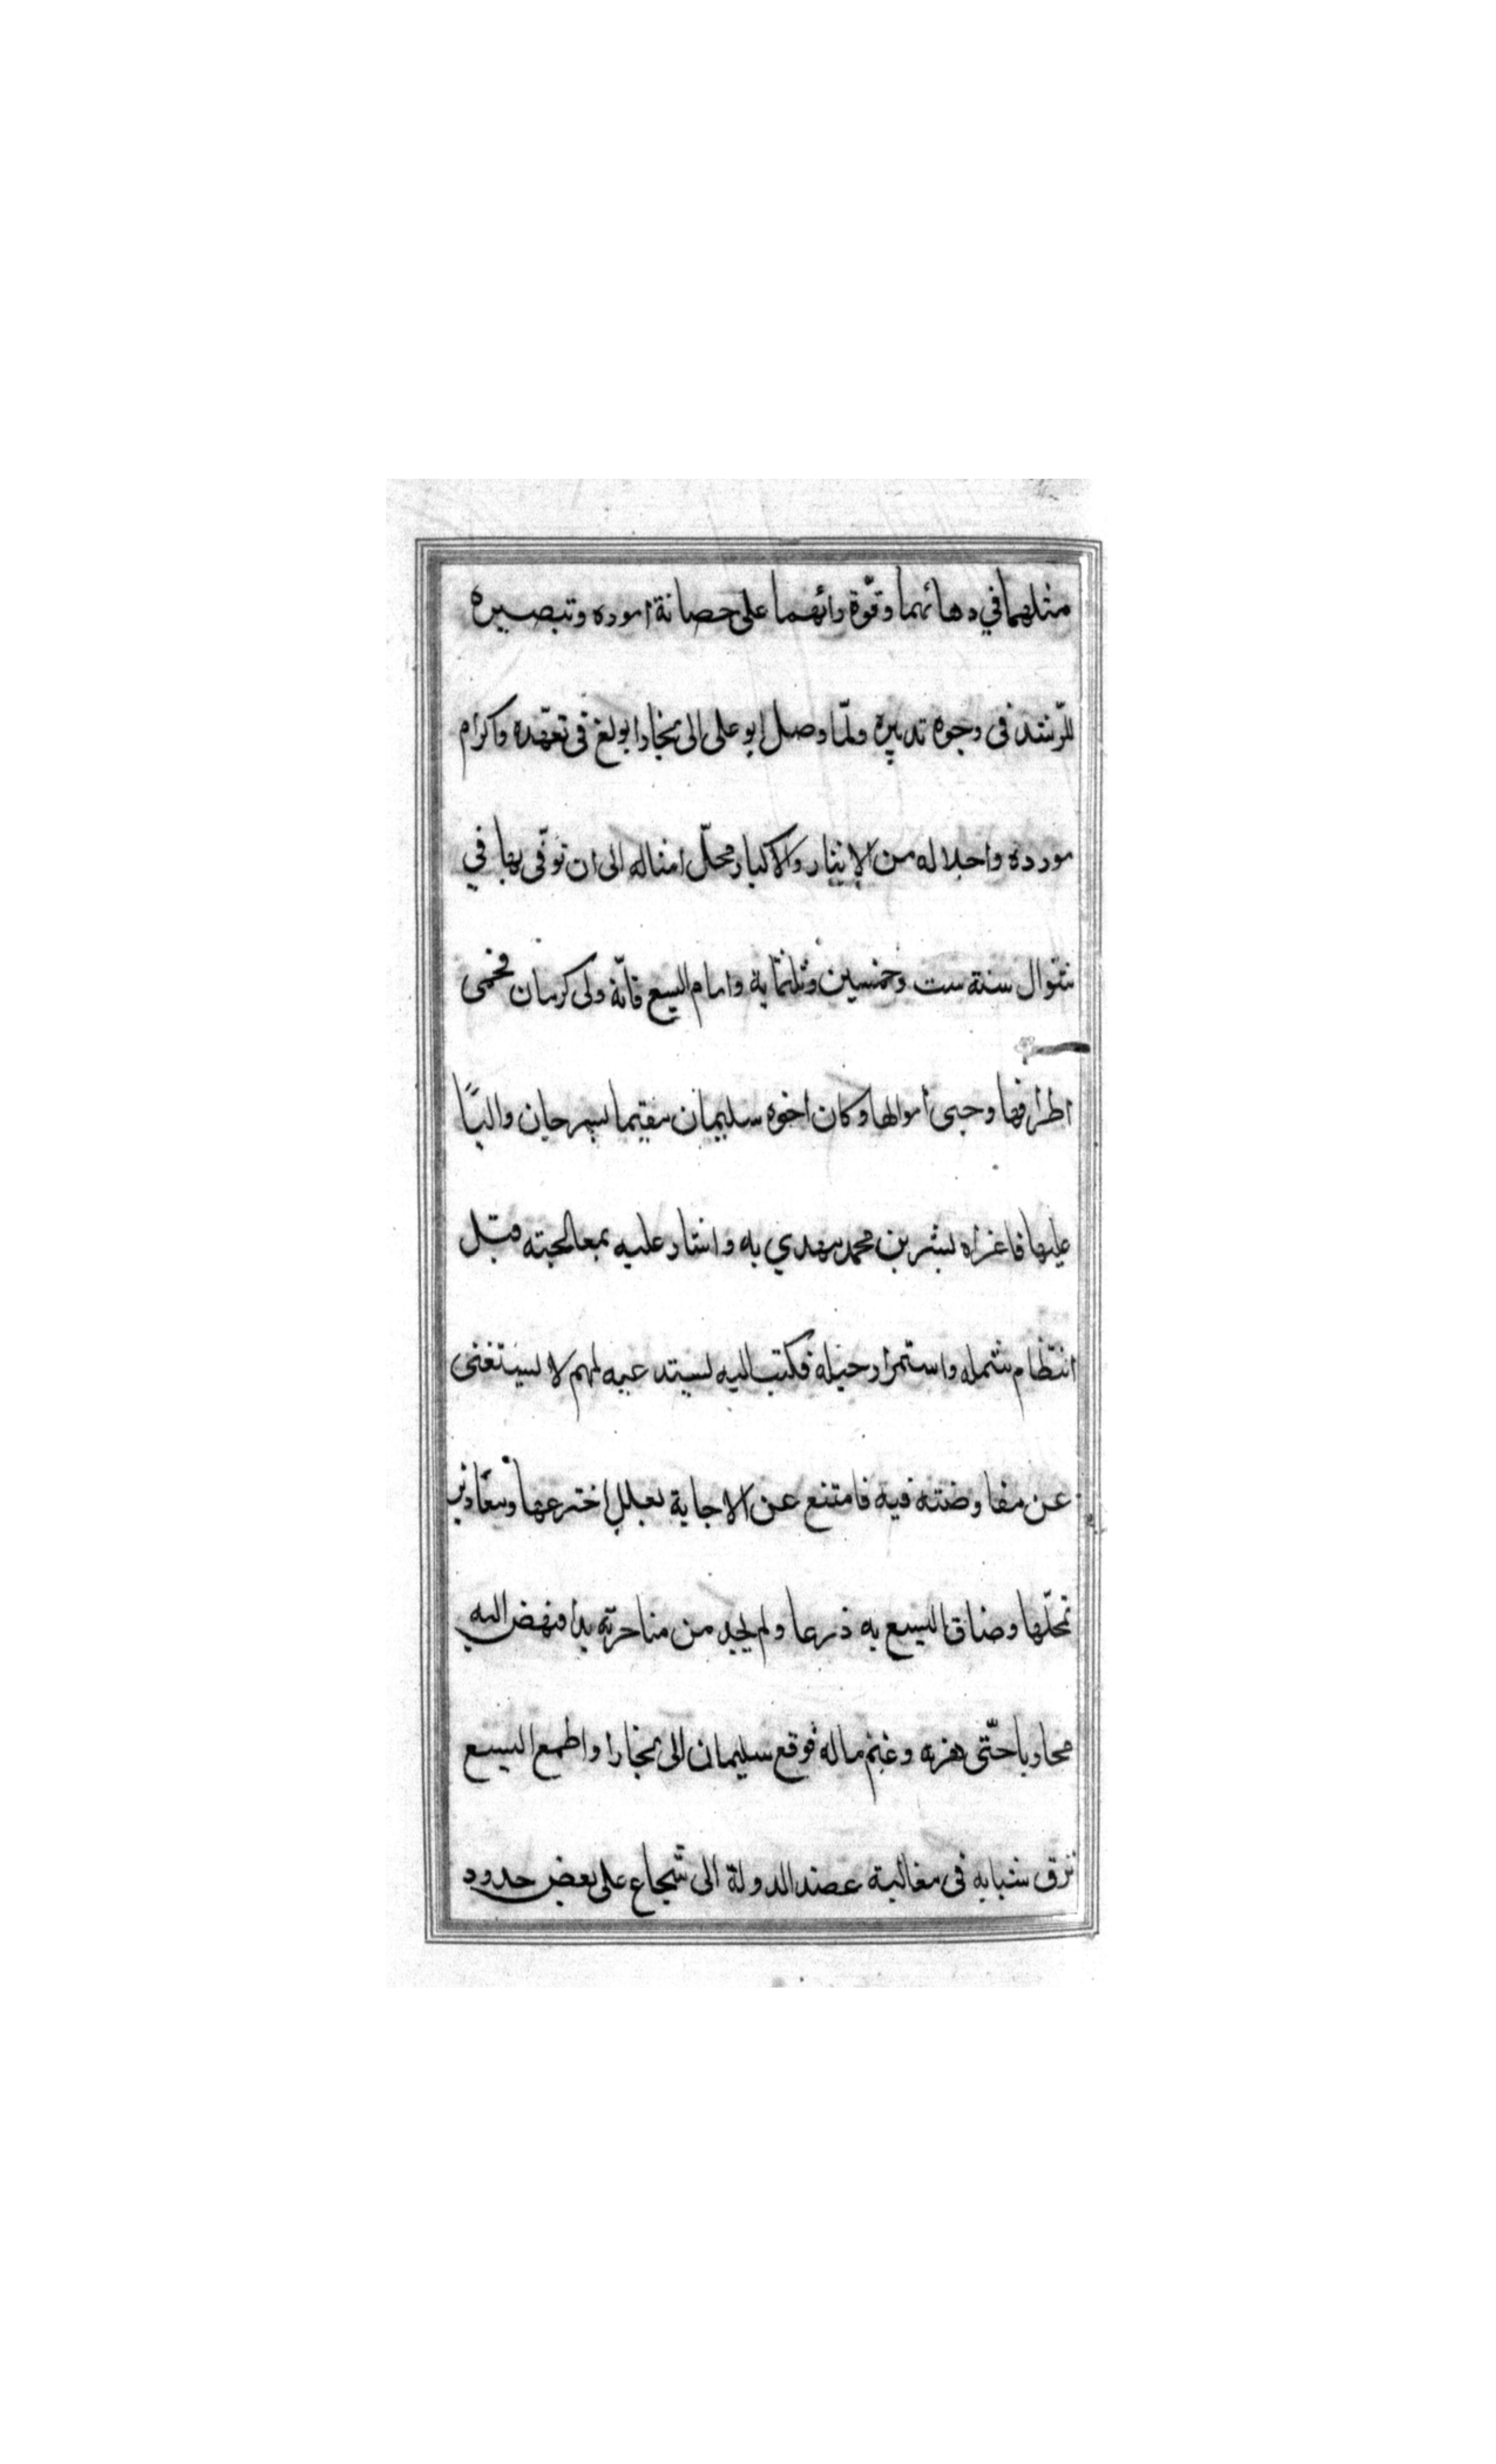 مثلهما في دهائهما وقوّة رائهما على حصانة اموره وتبصيره
للرّشد فى وجوه تدبيره ولمّا وصل ابو على الى بخارا بولغ فى تعهّده واكرام
مورده واحلاله من الايثار والاكبار محلّ امثاله الى ان توفّى بها في
شوال سنة ست وخمسين وثلثماية واما م اليسع فانّه ولى كرمان فحمى
اطرافها وجبى اموالها وكان اخوه سليمان مقيما بسيرجان واليًا
عليها فاغراه بشر بن محمد مهدي به واشار عليه بمعالجته قبل
انتظام شمله واستمرار حيله فكتب اليه يستدعيه لمهم لا يستغنى
عن مفاوضته فيه فامتنع عن الاجابة بعلل اخترعها ومعاذير
تمحلّها وضاق اليسع به ذرعا ولم يجد من مناجزته بدا فنهض اليه
محاربا حتّى هزمه وغنم ماله فوقع سليمان الى بخارا واطمع اليسع
نزق شبابه فى مغالبة عضد الدولة الى شجاع على بعض حدود